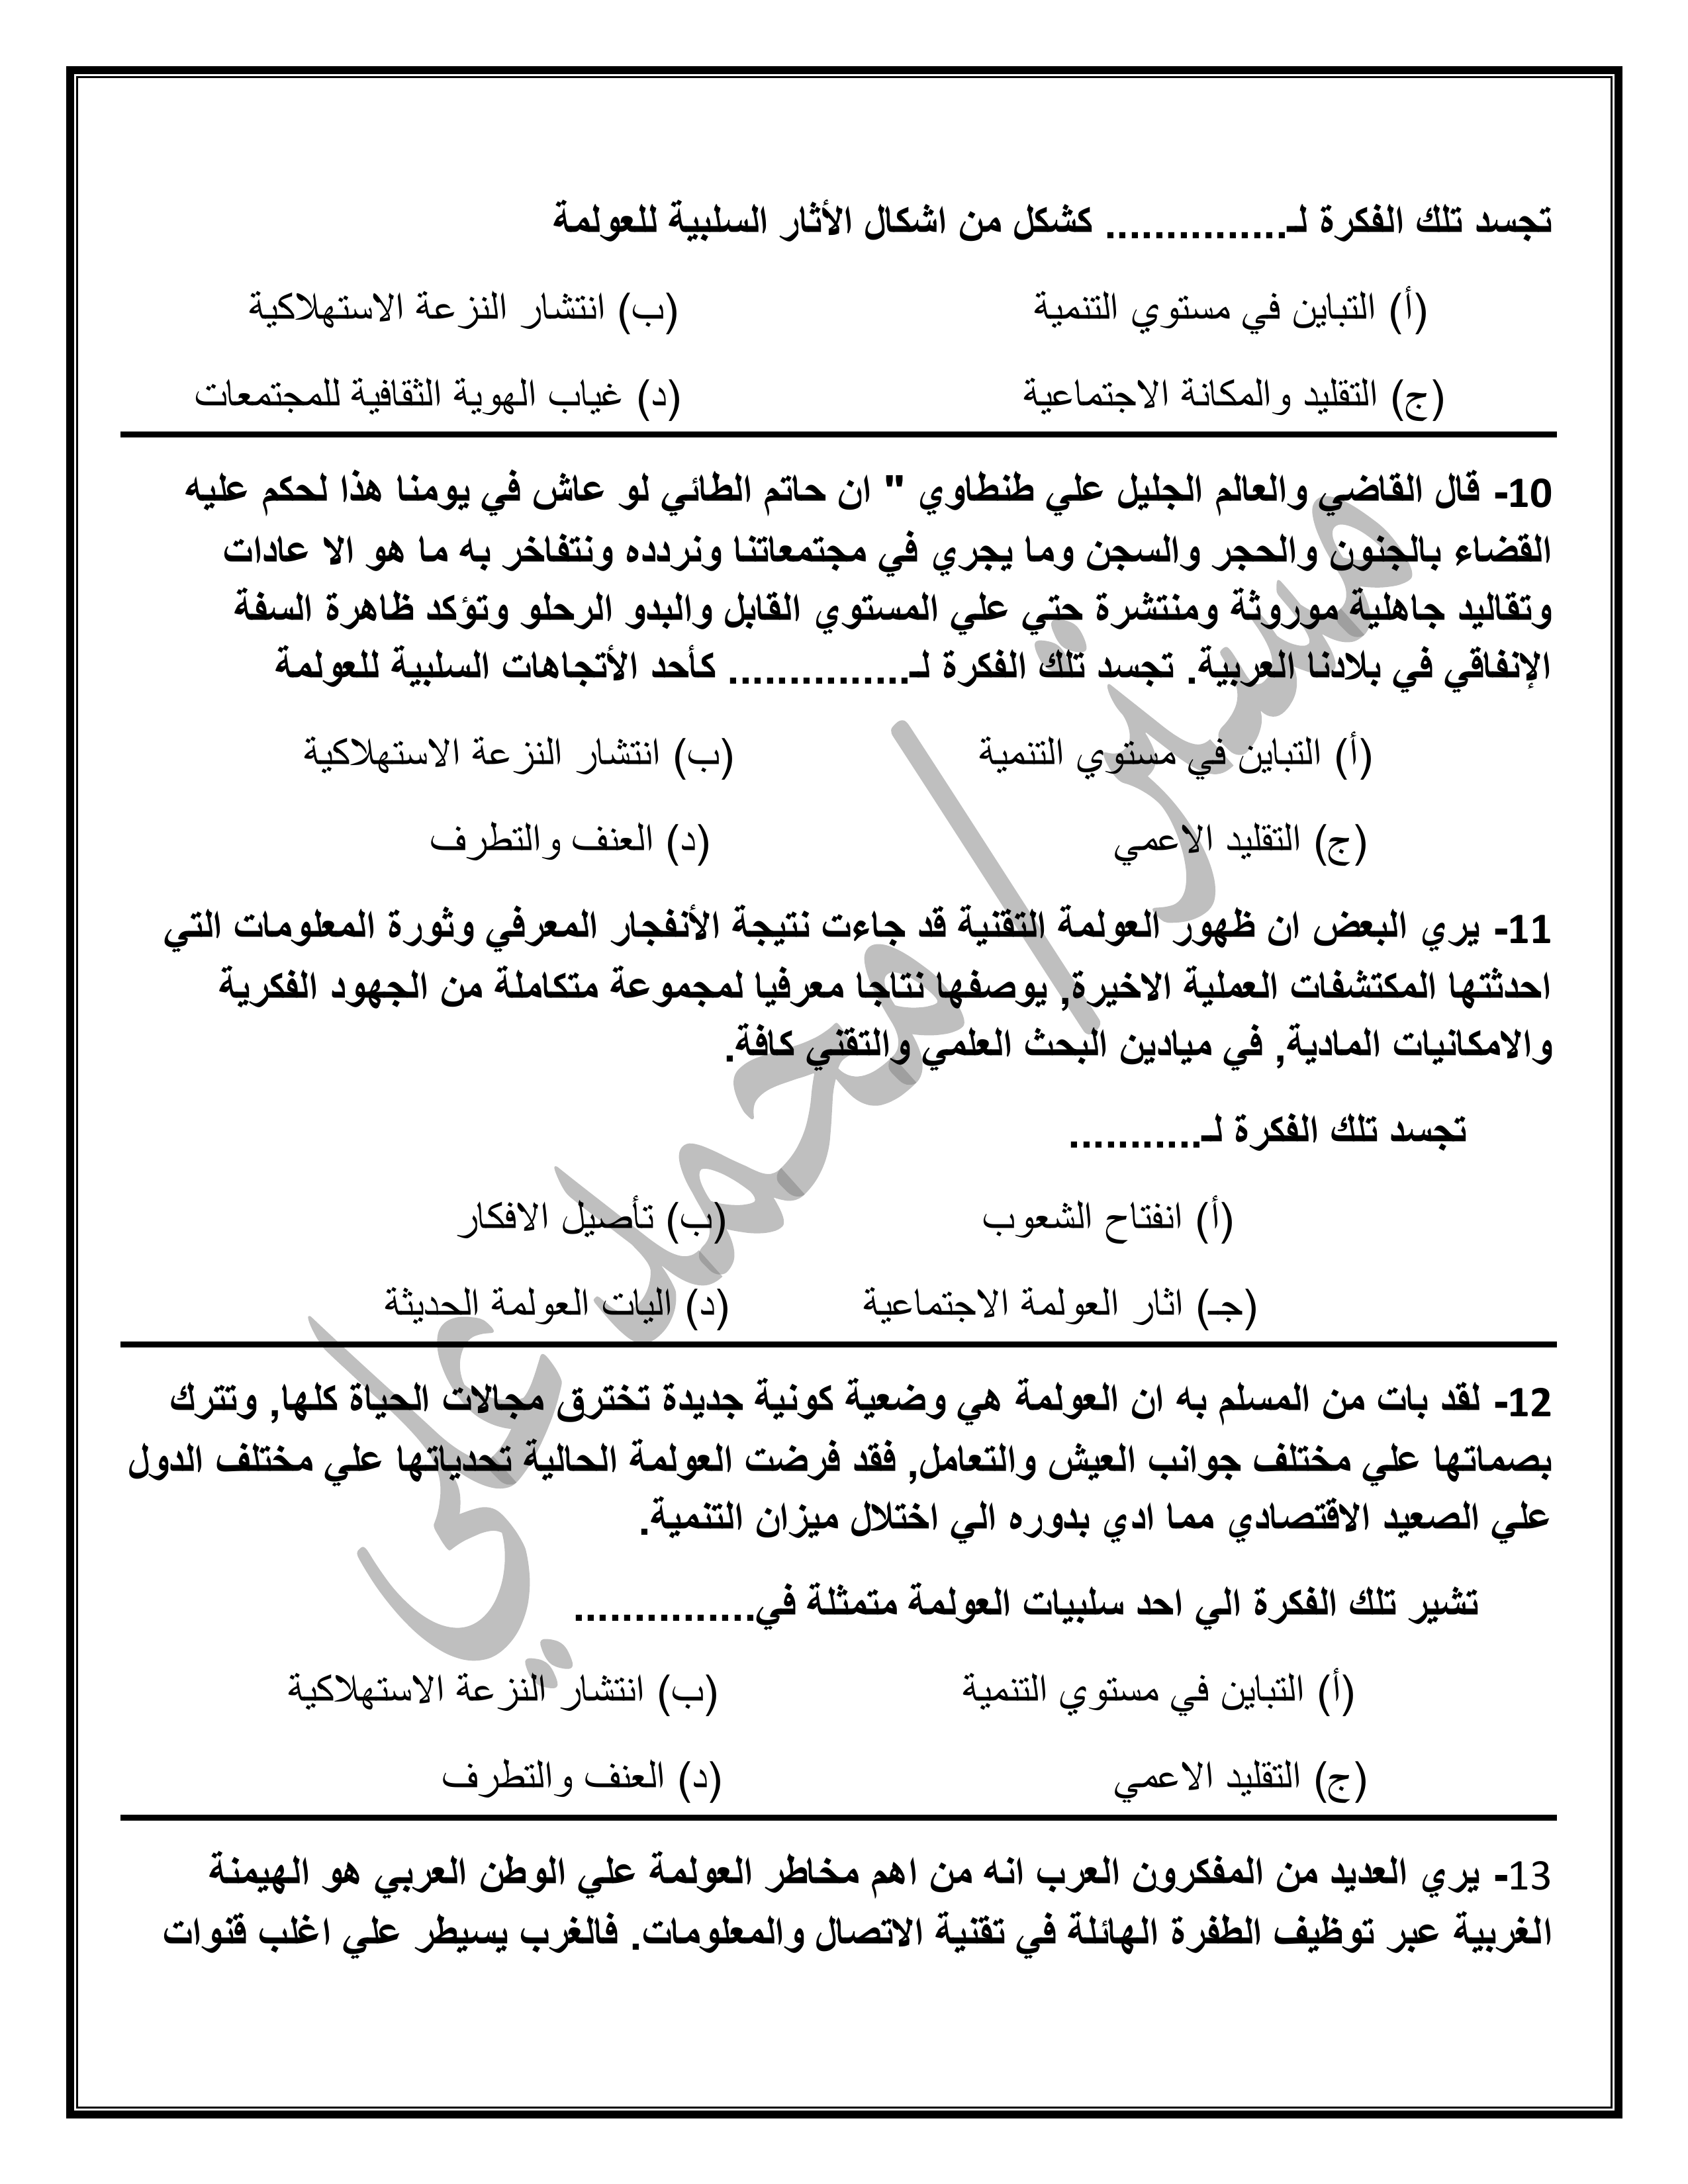 تجسد تلك الفكرة لـ............... كشكل من اشكال الأثار السلبية للعولمة
(أ) التباين في مستوي التنمية (ب) انتشار النزعة الاستهلاكية
(ج) التقليد والمكانة الاجتماعية (د) غياب الهوية الثقافية للمجتمعات
10- قال القاضي والعالم الجليل علي طنطاوي " ان حاتم الطائي لو عاش في يومنا هذا لحكم عليه
القضاء بالجنون والحجر والسجن وما يجري في مجتمعاتنا ونردده ونتفاخر به ما هو الا عادات
وتقاليد جاهلية موروثة ومنتشرة حتي علي المستوي القابل والبدو الرحلو وتؤكد ظاهرة السفة
الإنفاقي في بلادنا العربية. تجسد تلك الفكرة لـ............... كأحد الأتجاهات السلبية للعولمة
(أ) التباين في مستوي التنمية (ب) انتشار النزعة الاستهلاكية
(ج) التقليد الاعمي (د) العنف والتطرف
11- يري البعض ان ظهور العولمة التقنية قد جاءت نتيجة الأنفجار المعرفي وثورة المعلومات التي
احدثتها المكتشفات العملية الاخيرة, يوصفها نتاجا معرفيا لمجموعة متكاملة من الجهود الفكرية
والامكانيات المادية, في ميادين البحث العلمي والتقني كافة.
تجسد تلك الفكرة لـ...........
(أ) انفتاح الشعوب (ب) تأصيل الافكار
(جـ) اثار العولمة الاجتماعية (د) اليات العولمة الحديثة
12- لقد بات من المسلم به ان العولمة هي وضعية كونية جديدة تخترق مجالات الحياة كلها, وتترك
بصماتها علي مختلف جوانب العيش والتعامل, فقد فرضت العولمة الحالية تحدياتها علي مختلف الدول
علي الصعيد الاقتصادي مما ادي بدوره الي اختلال ميزان التنمية.
تشير تلك الفكرة الي احد سلبيات العولمة متمثلة في...............
(أ) التباين في مستوي التنمية (ب) انتشار النزعة الاستهلاكية
(ج) التقليد الاعمي (د) العنف والتطرف
13- يري العديد من المفكرون العرب انه من اهم مخاطر العولمة علي الوطن العربي هو الهيمنة
الغربية عبر توظيف الطفرة الهائلة في تقنية الاتصال والمعلومات. فالغرب يسيطر علي اغلب قنوات
مستر/محمد علي